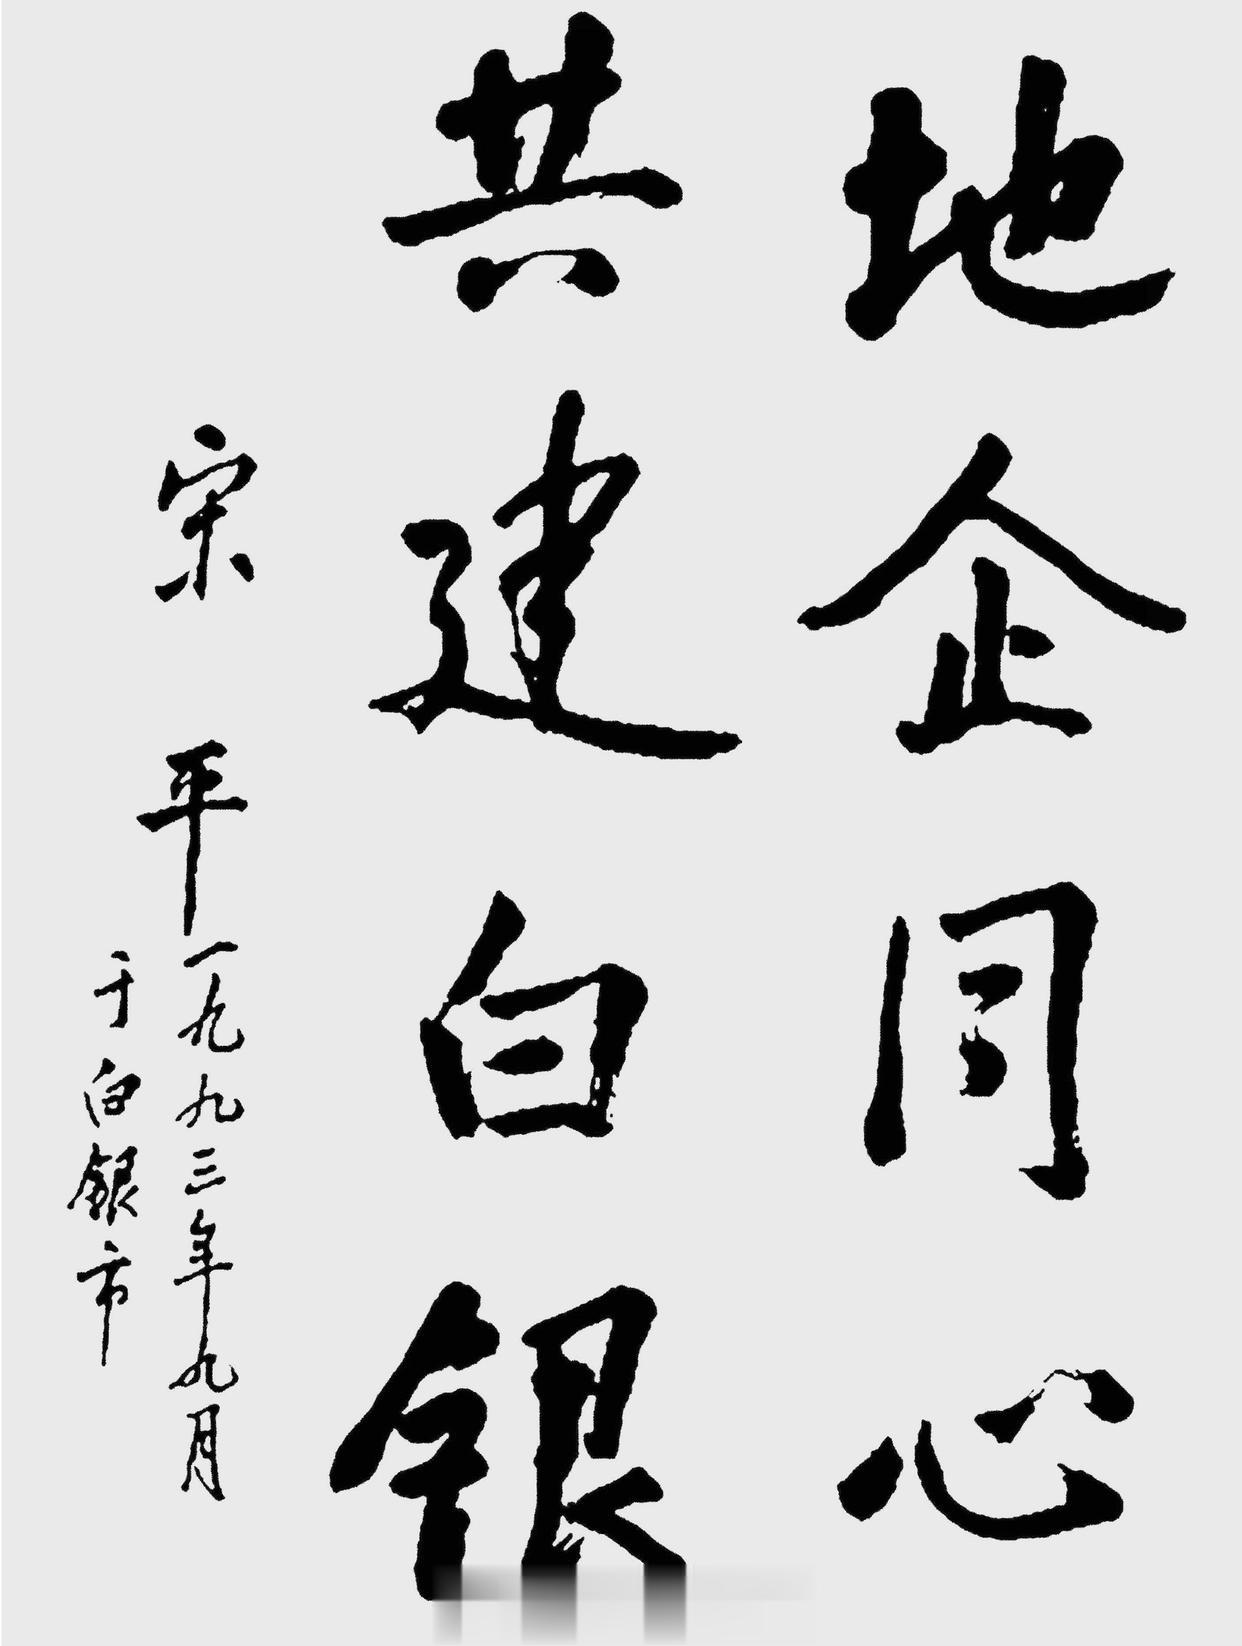 地企同心
共建白银
宋平一九九三年九月
于白银市